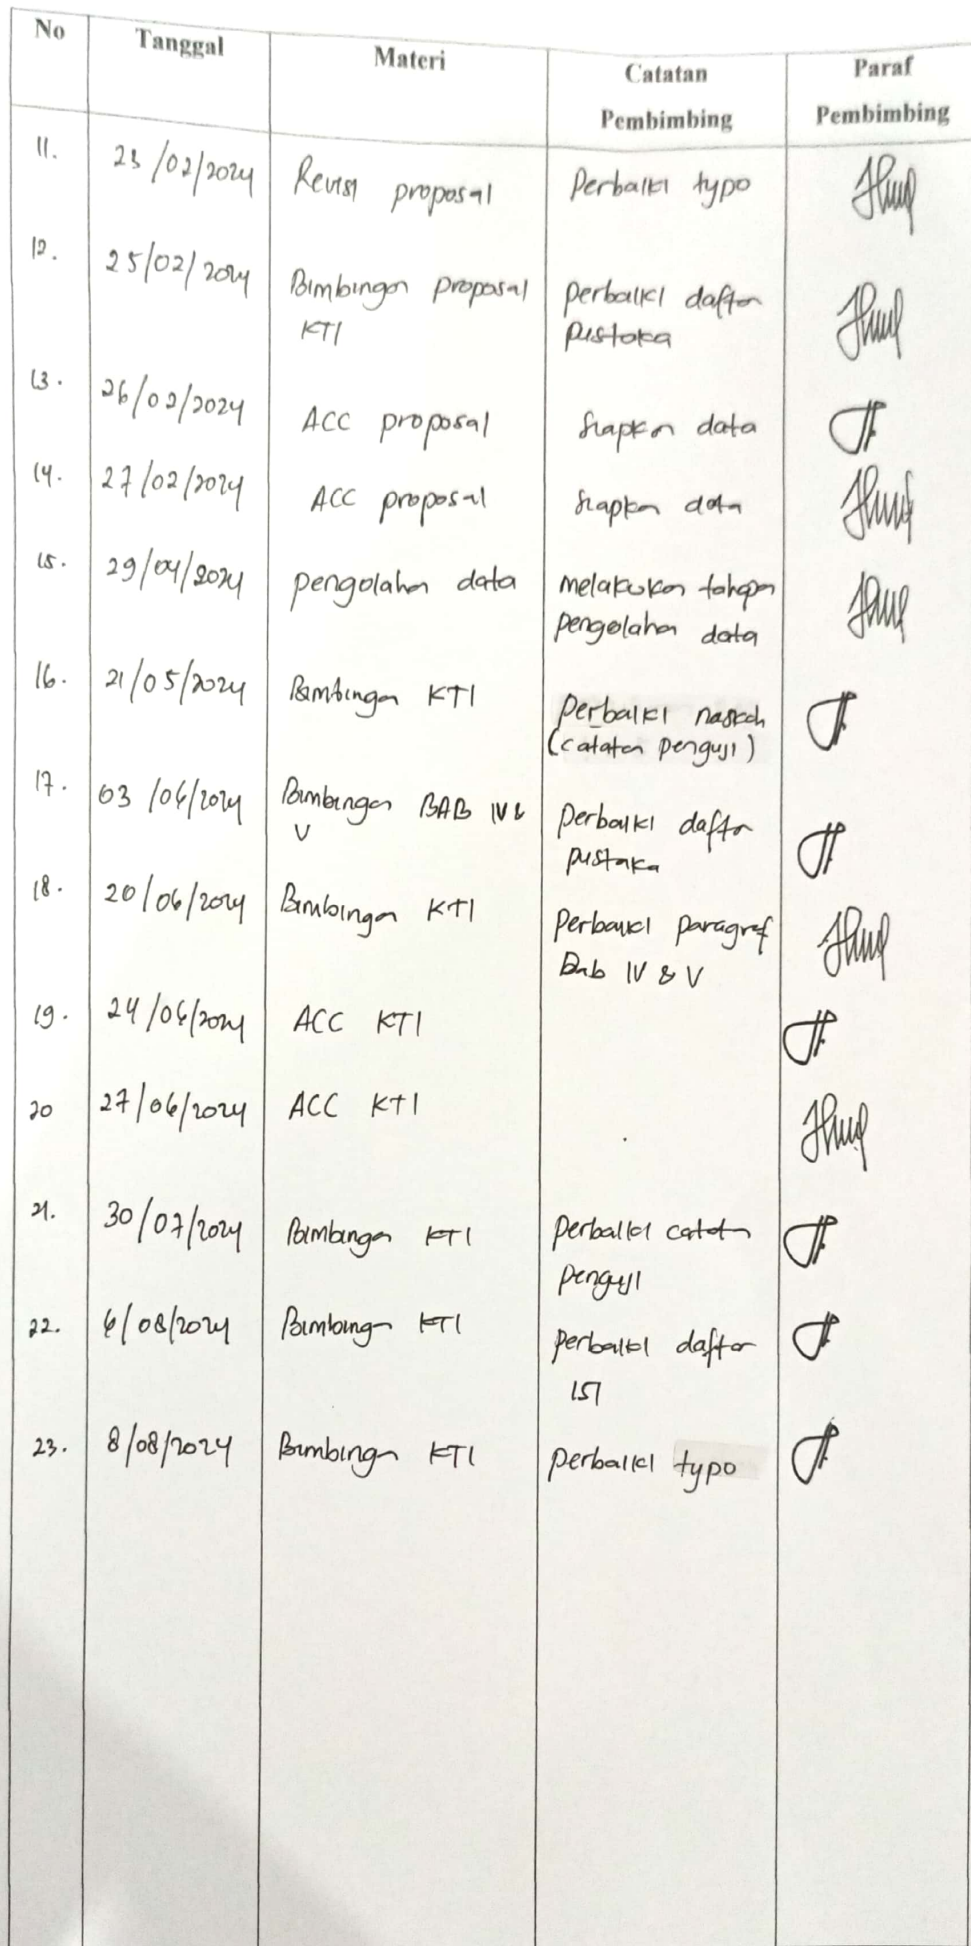 No Tanggal Materi Catatan Pembimbing Paraf Pembimbing
11. 23/02/2024 Revisi proposal Perbaiki typo
12. 25/02/2024 Bimbingan proposal perbaiki daftar
KTI pustaka
13. 26/02/2024 ACC proposal Siapkan data
14. 27/02/2024 ACC proposal Siapkan data
15. 29/04/2024 pengolahan data melakukan tahapan
pengolahan data
16. 21/05/2024 Bimbingan KTI Perbaiki naskah
(catatan penguji)
17. 03/06/2024 Bimbingan BAB IV & perbaiki daftar
V pustaka
18. 20/06/2024 Bimbingan KTI Perbaiki paragraf
Bab IV & V
19. 24/06/2024 ACC KTI
20 27/06/2024 ACC KTI
21. 30/07/2024 Bimbingan KTI Perbaiki catatan
penguji
22. 6/08/2024 Bimbingan KTI perbaiki daftar
isi
23. 8/08/2024 Bimbingan KTI perbaiki typo